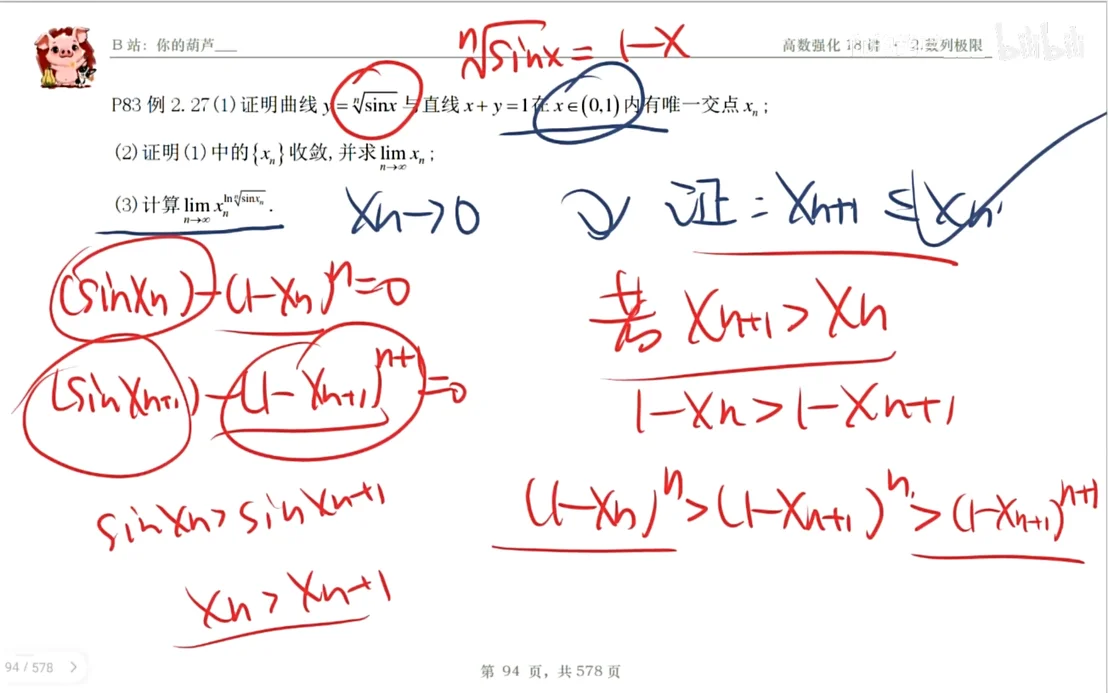 ⁿ√sinx = 1-x
B 站：你的葫芦___
高数强化 18 讲
2.数列极限
bilibili
P83 例 2.27(1)证明曲线 y = ⁿ√sinx 与直线 x + y = 1 在 x∈(0,1) 内有唯一交点 xₙ；
(2)证明(1)中的{xₙ}收敛,并求 lim n→∞ xₙ；
(3)计算 lim n→∞ xₙ^(ln ⁿ√sinxₙ).
Xn→0
证: Xn+1 ≤ Xn
(sinXn) - (1-Xn)^n = 0
若 Xn+1 > Xn
(sinXn+1) - (1-Xn+1)^n+1 = 0
1-Xn > 1-Xn+1
sinXn > sinXn+1
(1-Xn)^n > (1-Xn+1)^n > (1-Xn+1)^n+1
Xn > Xn+1
94 / 578 >
第 94 页，共 578 页